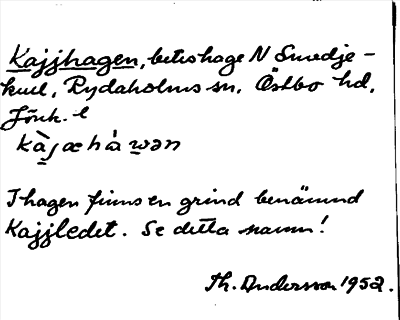 Kajjhagen, beteshage N Smedje-
kull, Rydaholms sn, Östbo hd,
Jönk. l
kàjæhàwən
I hagen finns en grind benämnd
Kajjledet. Se detta namn!
Th. Andersson 1952.